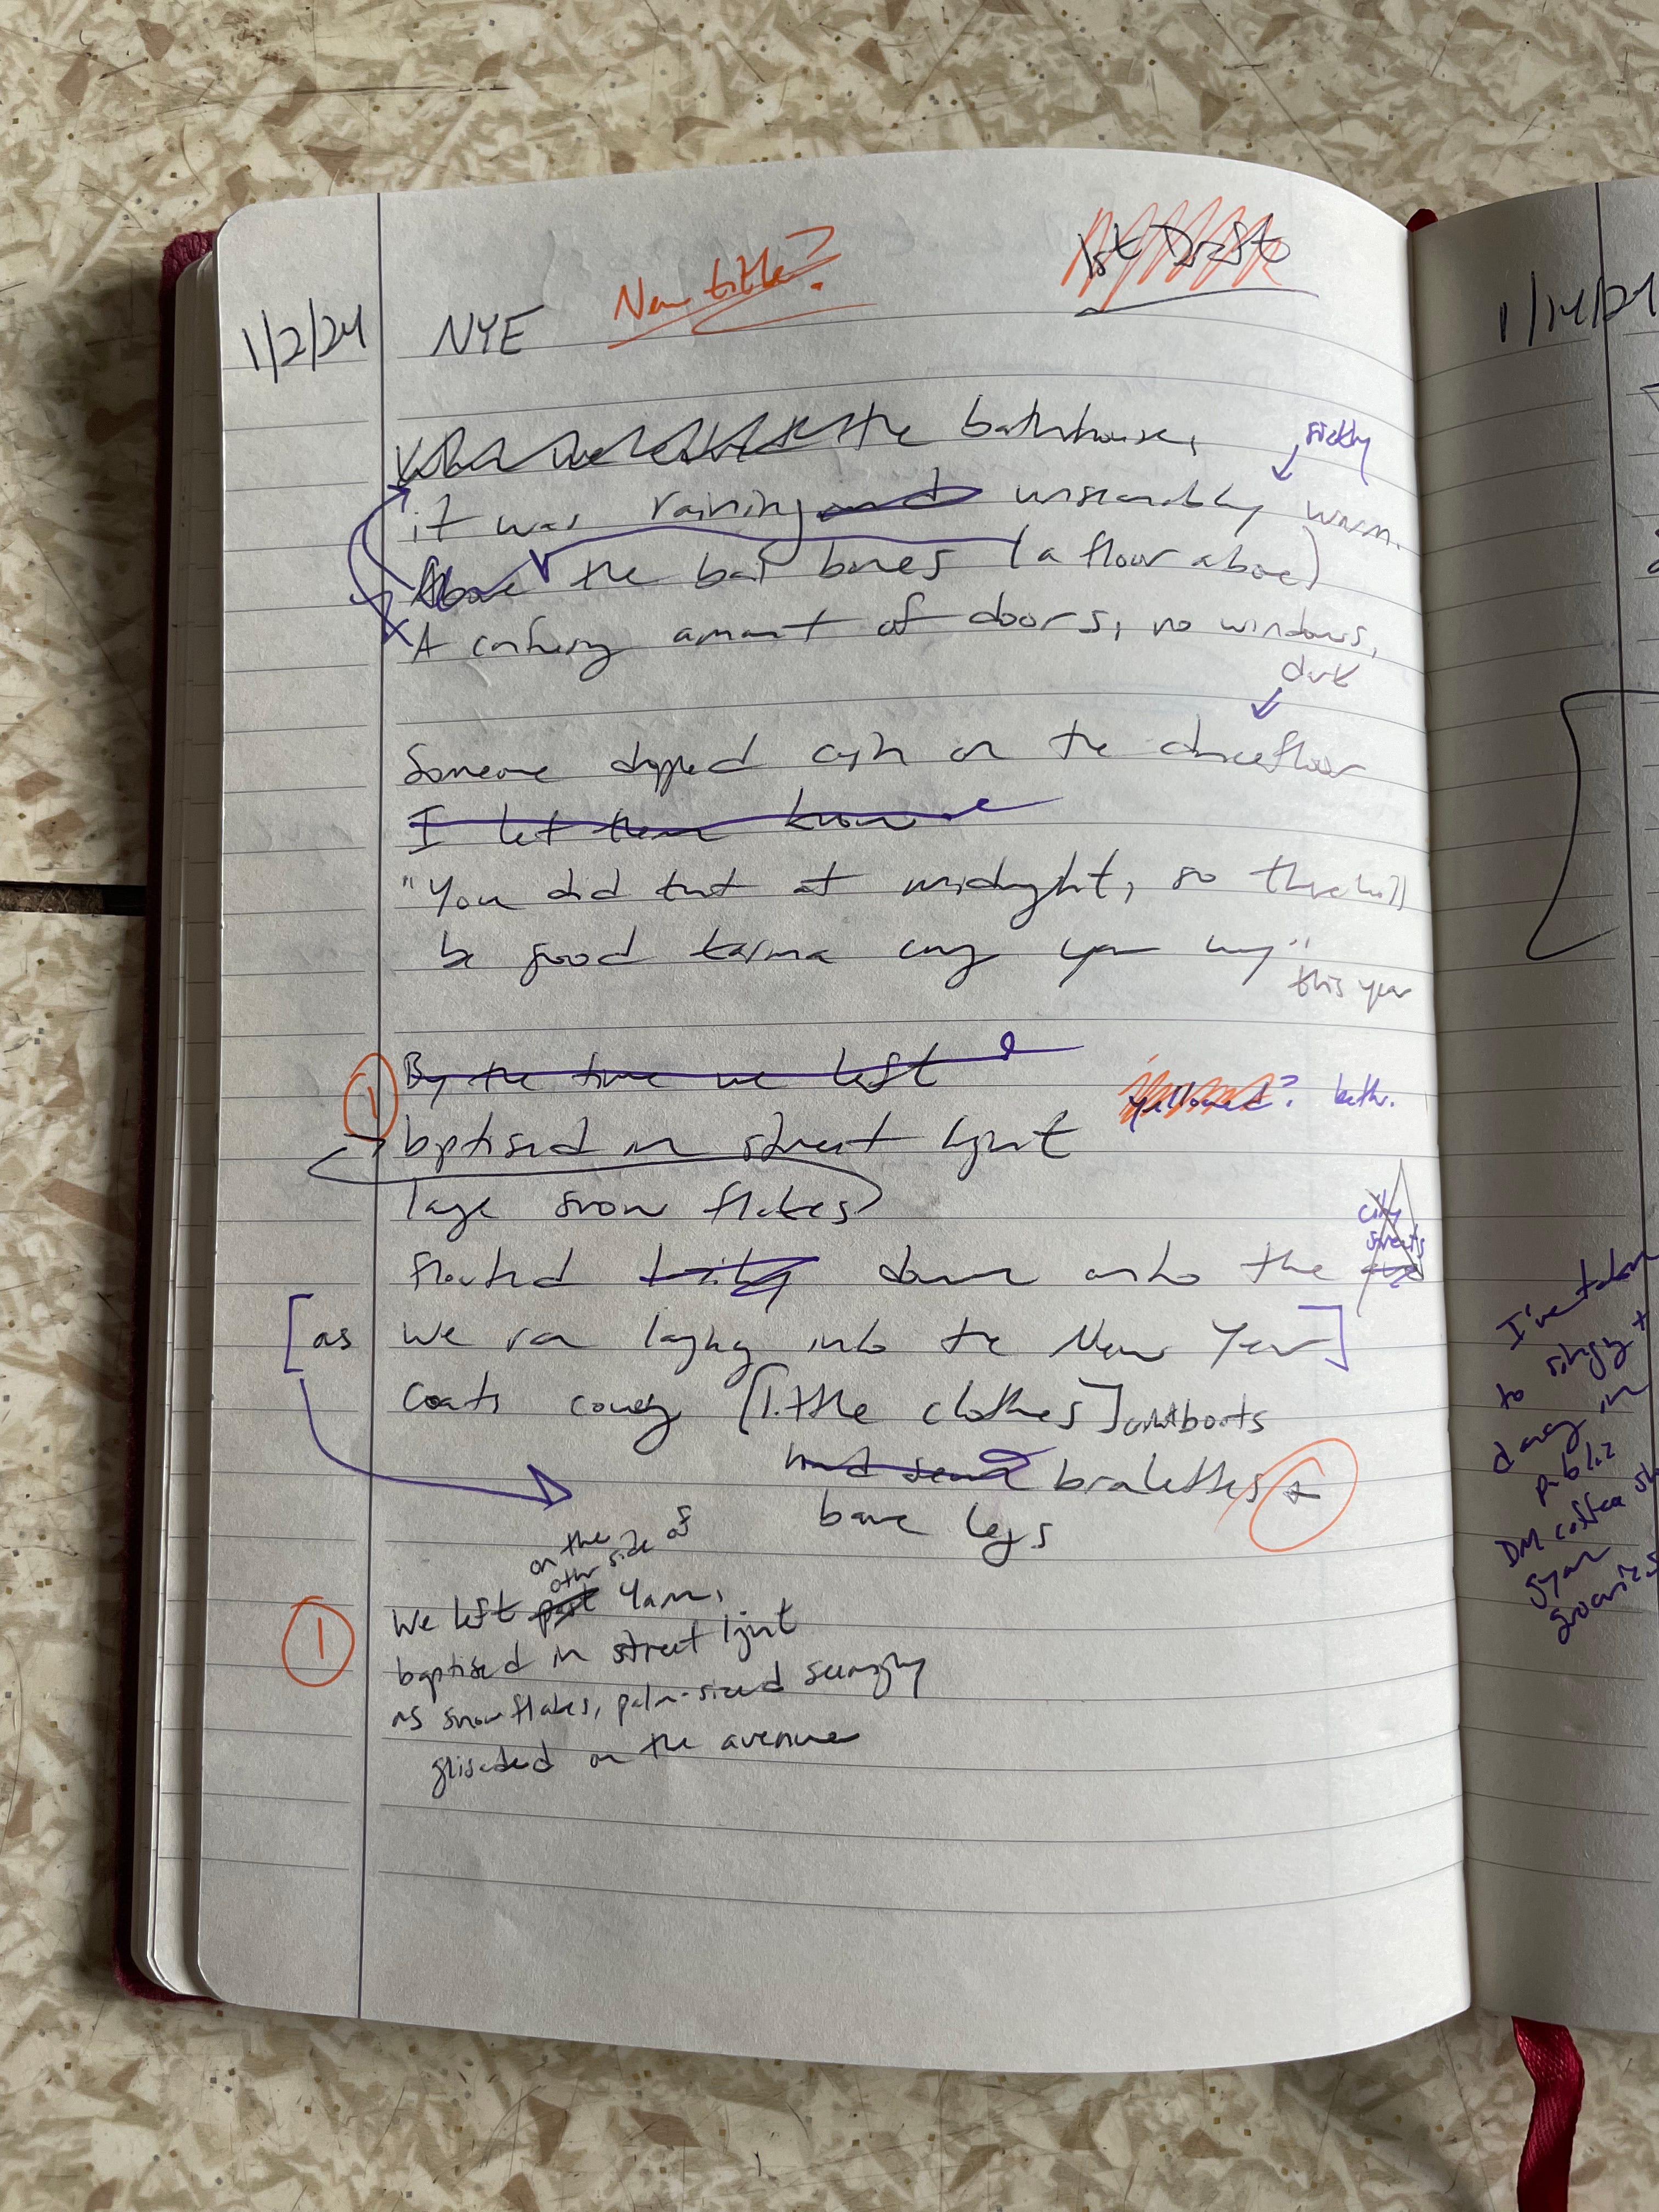 1/2/24
NYE
New title?
1st Draft
the bathhouse,
sickly
it was raining and unseasonably warm.
Above the bar bones (a floor above)
A confusing amount of doors, no windows,
dark
Someone dropped cash on the dancefloor
I let them know
"You did that at midnight, so there will
be good karma coming your way"
this year
1
By the time we left
yellowed?
baptised in street light
large snow flakes
city
streets
floated down onto the
[as we ran laughing into the New Year]
Coats covering [little clothes]
bralettes &
bare legs
on the
other side of
1
We left past 4am,
baptised in street light
as snowflakes, palm-sized seemingly
on the avenue
1/14/24
I've taken
to singing +
dancing in
public
coffee